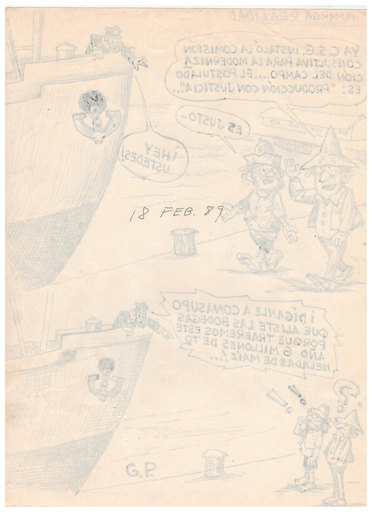 AMARGA REALIDAD
YA C.S.G. INSTALÓ LA COMISION
CONSULTIVA PARA LA MODERNIZA
CIÓN DEL CAMPO....EL POSTULADO
ES: "PRODUCCIÓN CON JUSTICIA"...
ES JUSTO...
¡HEY
USTEDES!
18 FEB. 89
¡DÍGANLE A CONASUPO
QUE ALISTE LAS BODEGAS
PORQUE TRAEREMOS ESTE
AÑO 6 MILLONES DE TO
NELADAS DE MAÍZ!...
G.P.